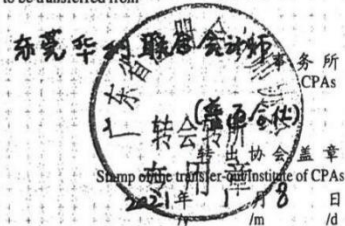 to be transferred from
东莞华䌷联合会计师事务所
CPAs
(普通合伙)
转出协会盖章
Stamp of the transfer-out Institute of CPAs
2021年1月8日
/y /m /d
广东省
转会
专用章